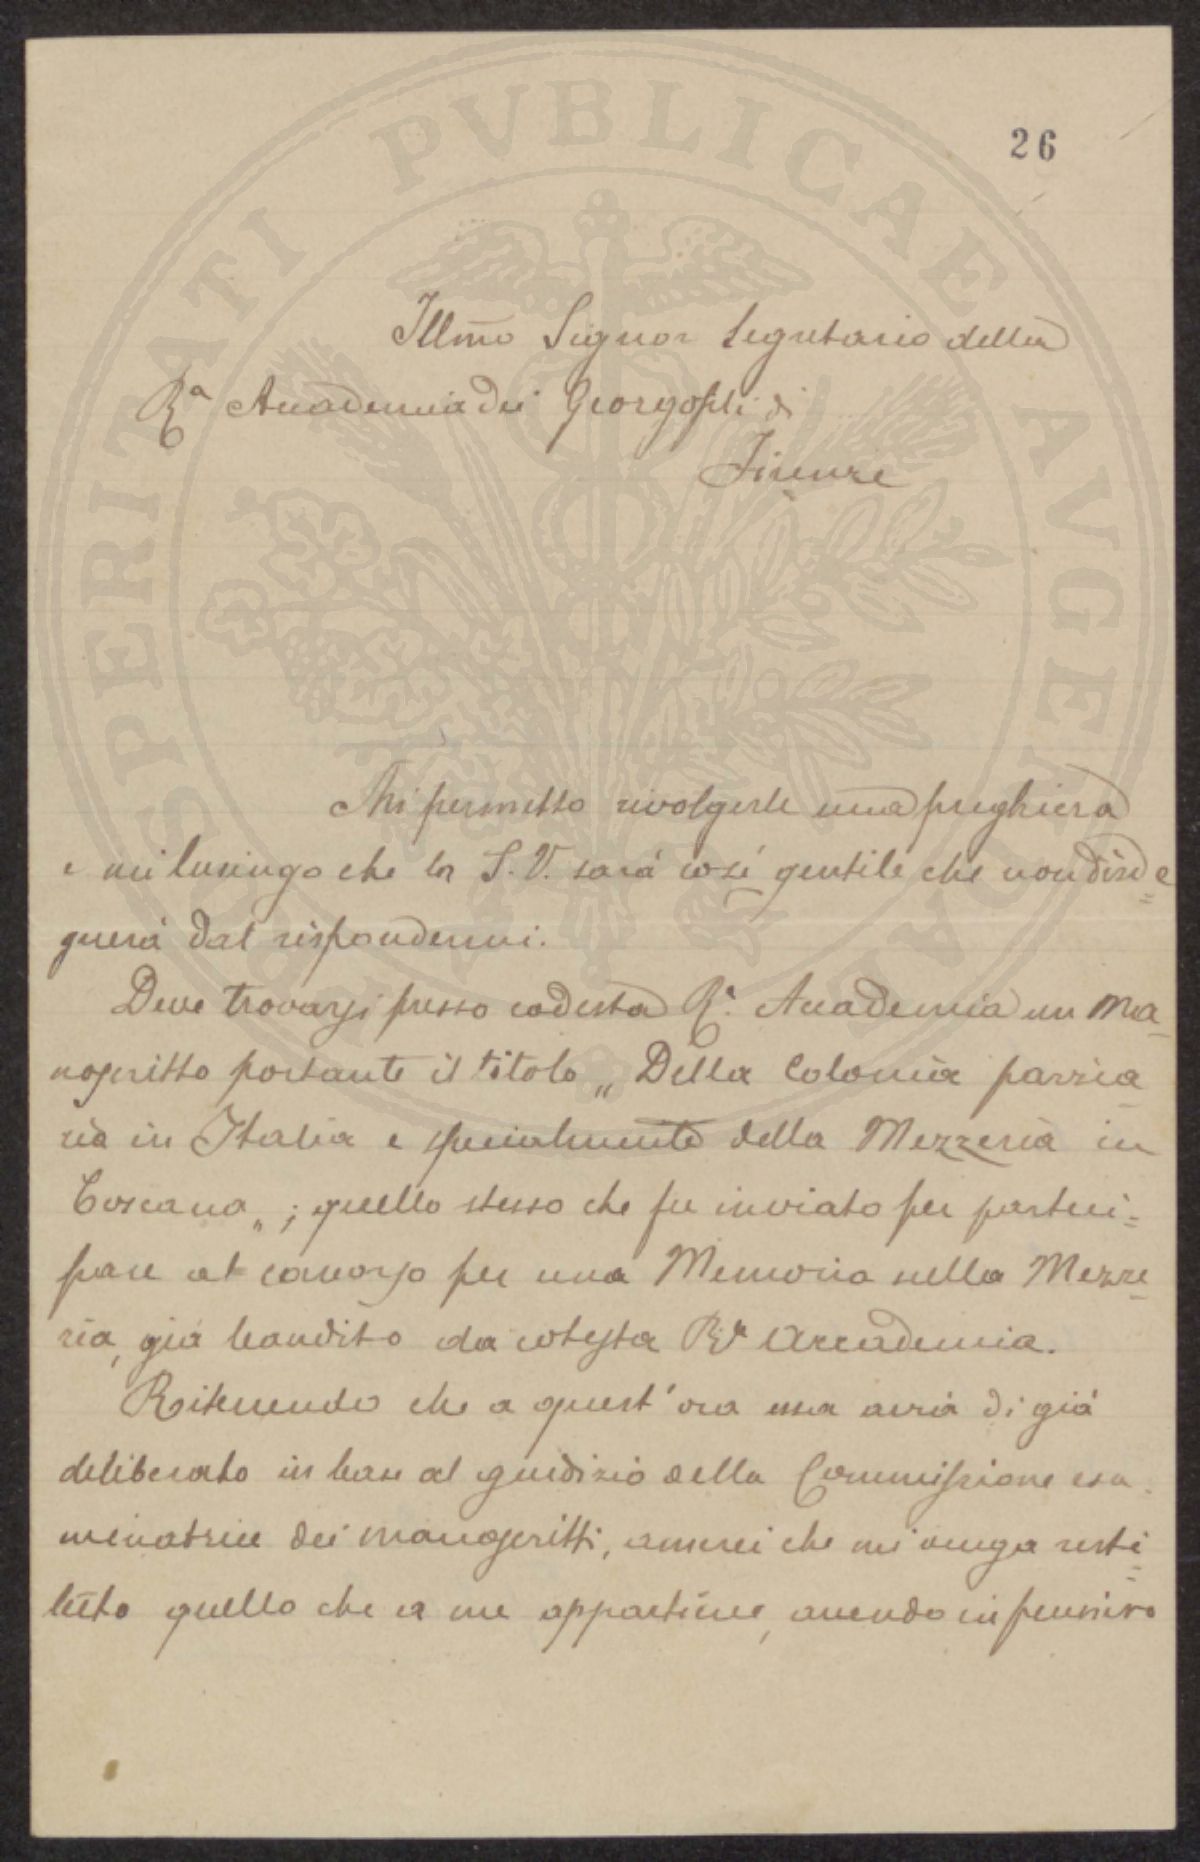 26
Illmo Signor Segretario della
Ra Accademia dei Georgofili di
Firenze
Mi permetto rivolgerle una preghiera
e mi lusingo che la S. V. sarà così gentile che non disde=
gnerà dal rispondermi.
Deve trovarsi presso codesta Ra. Accademia un Ma=
noscritto portante il titolo „ Della Colonia parzia
ria in Italia e specialmente della Mezzeria in
Toscana „ ; quello stesso che fu inviato per parteci=
pare al concorso per una Memoria sulla Mezze=
ria, già bandito da cotesta Ra Accademia.
Ritenendo che a quest'ora essa avrà di già
deliberato in base al giudizio della Commissione esa=
minatrice dei manoscritti, amerei che mi venga resti=
tuito quello che a me appartiene, avendo in pensiero
PROSPERITATI PVBLICAE AVGENDAE